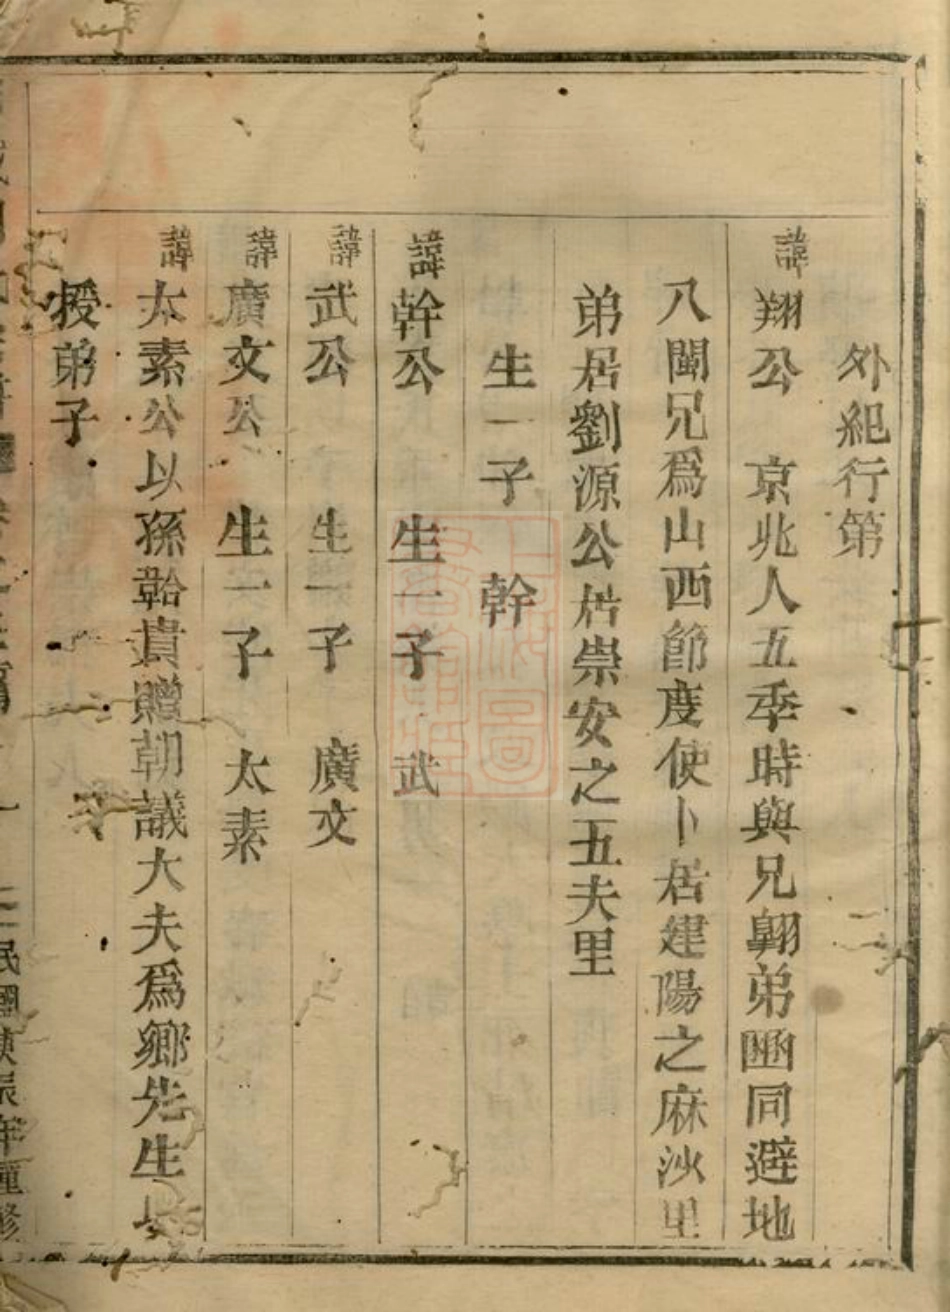 外紀行第
諱翔公 京兆人五季時與兄翺弟豳同避地
八閩兄爲山西節度使卜居建陽之麻沙里
弟居劉源公居崇安之五夫里
生一子 幹
諱幹公 生一子 武
諱武公 生一子 廣文
諱廣文公 生一子 太素
諱太素公以孫韐貴贈朝議大夫爲鄉先生
授弟子
民國庚辰年重修